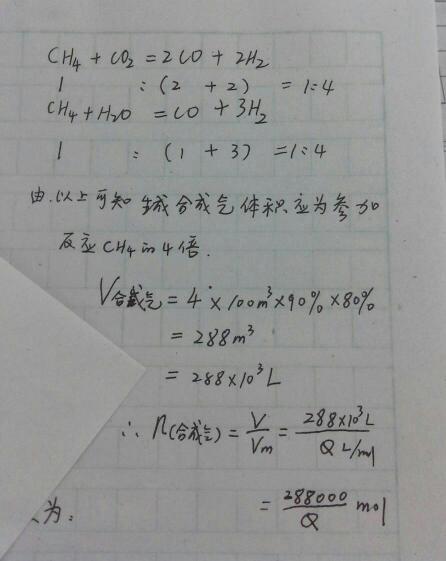 CH₄ + CO₂ = 2CO + 2H₂
1 : (2 + 2) = 1:4
CH₄ + H₂O = CO + 3H₂
1 : (1 + 3) = 1:4
由以上可知 生成合成气体积应为参加
反应CH₄的4倍.
V合成气 = 4 × 100m³ × 90% × 80%
= 288m³
= 288×10³ L
∴ n(合成气) = V/Vm = 288×10³L / Q L/mol
为: = 288000/Q mol